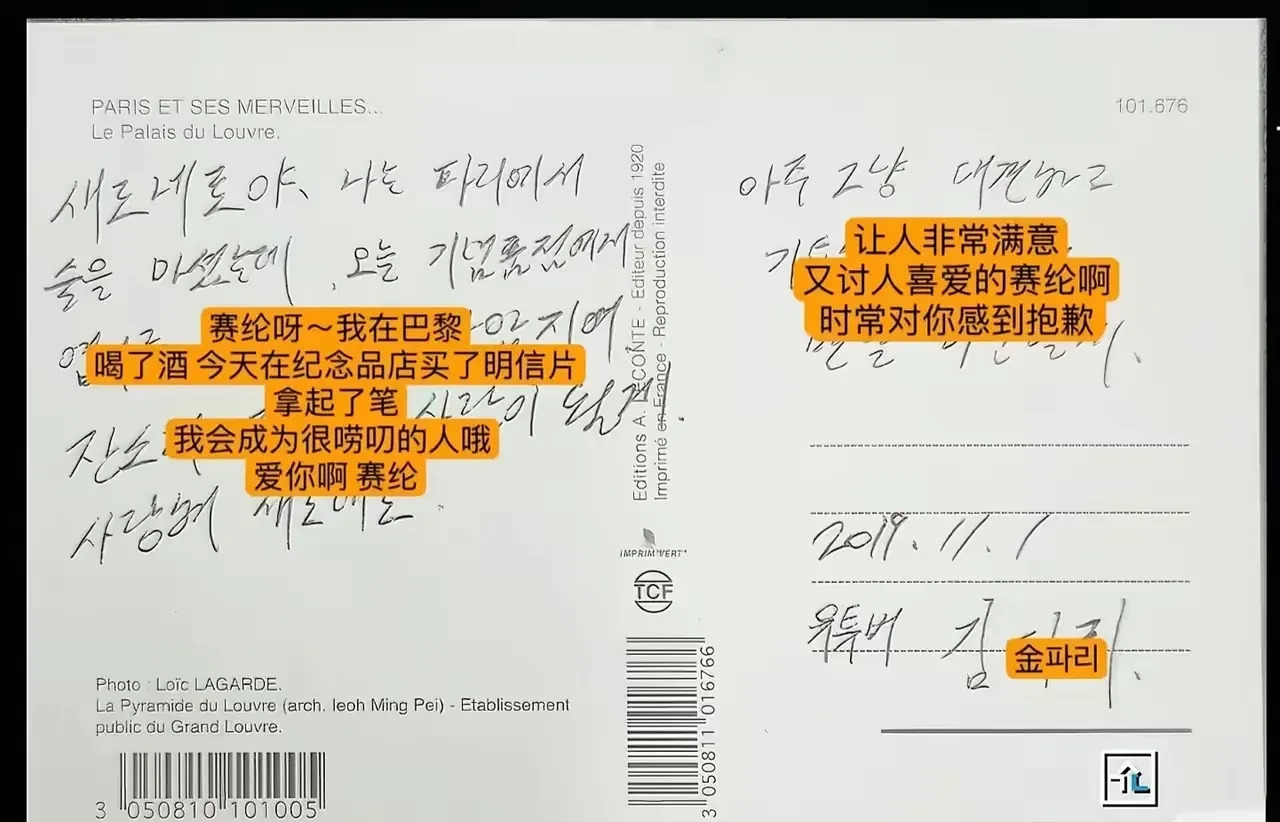 PARIS ET SES MERVEILLES...
Le Palais du Louvre.
새로네로야, 나는 파리에서
술을 마셨는데, 오늘 기념품점에서
赛纶呀～我在巴黎
喝了酒 今天在纪念品店买了明信片
拿起了笔
我会成为很唠叨的人哦
爱你啊 赛纶
사랑이 될게.
사랑해 새로네로.
Photo : Loïc LAGARDE.
La Pyramide du Louvre (arch. Ieoh Ming Pei) - Etablissement
public du Grand Louvre.
3 050810 101005
Editions A. LECONTE - Editeur depuis 1920
Imprimé en France - Reproduction interdite
IMPRIM'VERT
TCF
3 050811 016766
101.676
아주 그냥 대견하고
让人非常满意
又讨人喜爱的赛纶啊
时常对你感到抱歉
2019.11.1
유투버 김
金파리